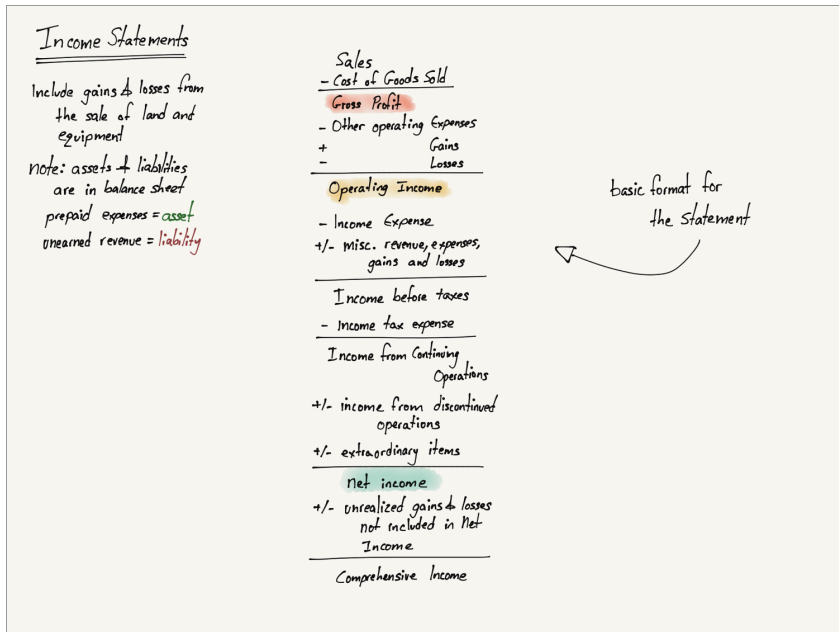 Income Statements
Include gains & losses from
the sale of land and
equipment
note: assets & liabilities
are in balance sheet
prepaid expenses = asset
unearned revenue = liability
Sales
- Cost of Goods Sold
Gross Profit
- Other operating Expenses
+ Gains
- Losses
Operating Income
- Income Expense
+/- misc. revenue, expenses,
gains and losses
Income before taxes
- Income tax expense
Income from Continuing
Operations
+/- income from discontinued
operations
+/- extraordinary items
net income
+/- unrealized gains & losses
not included in Net
Income
Comprehensive Income
basic format for
the Statement